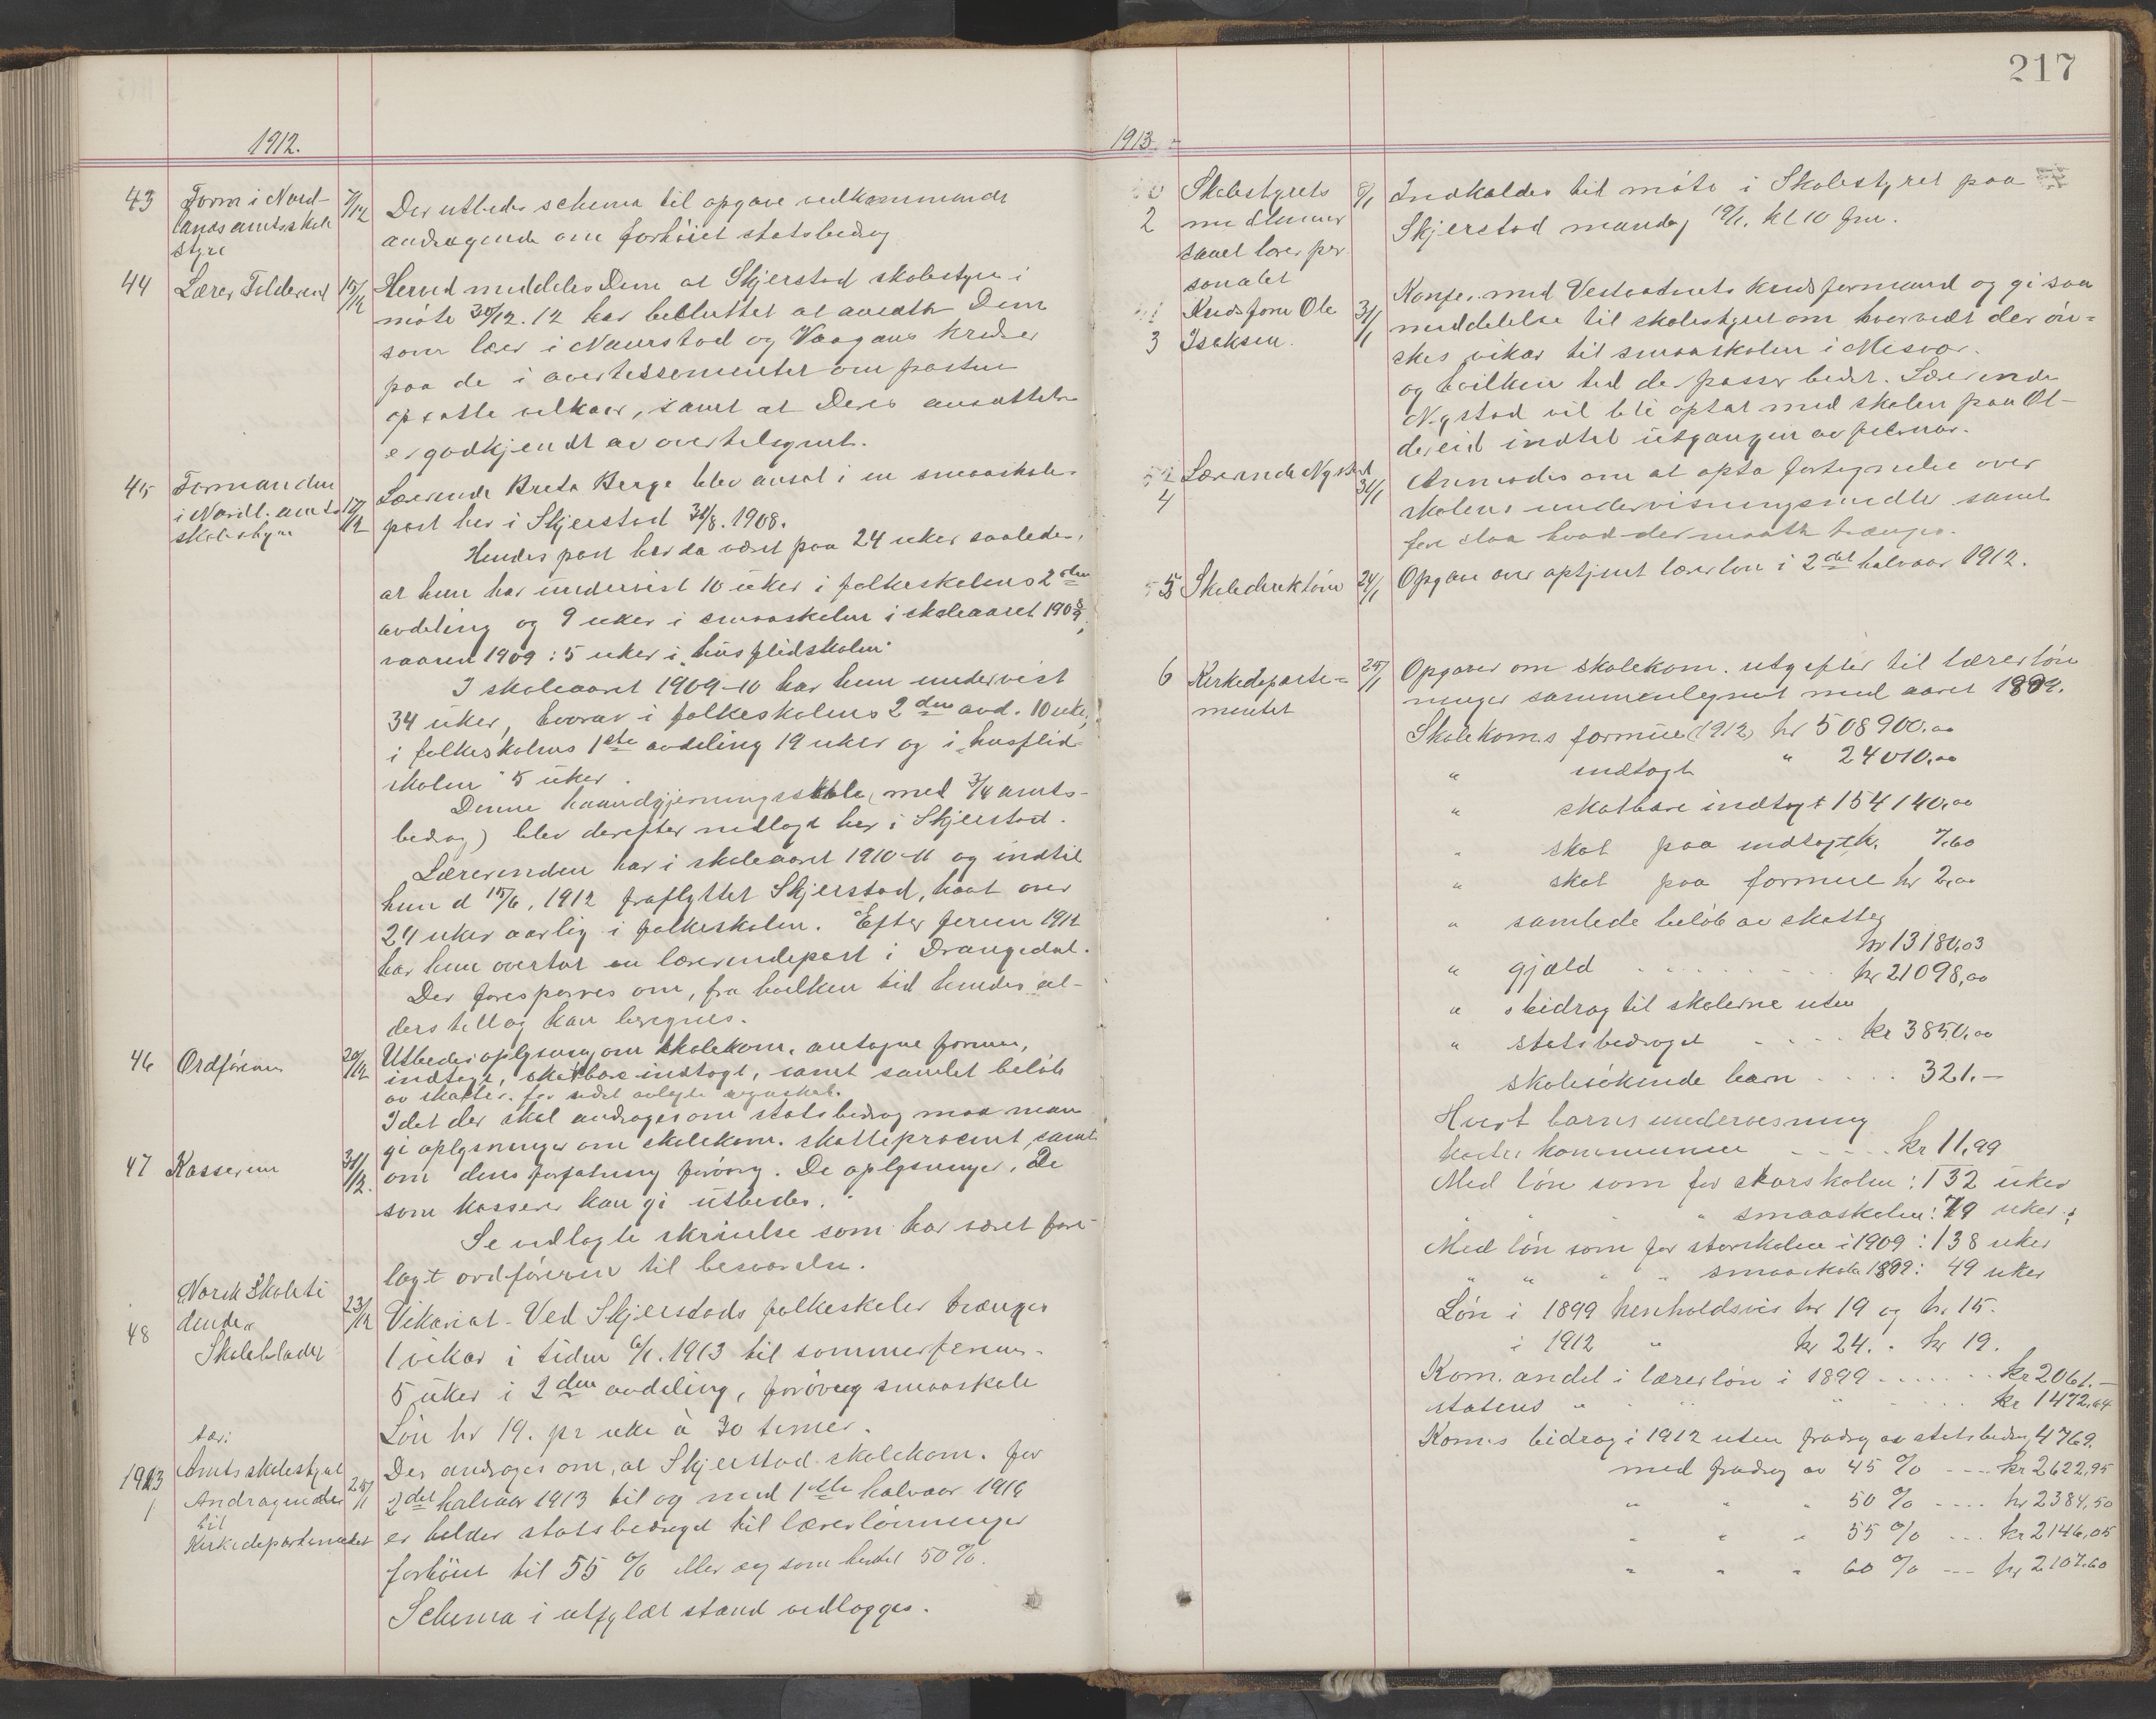 1912.
43 Form i Nord- 7/12 Der utbedes schema til opgave vedkommende
lands amtsskole andragende om forhöiet statsbedrag
styre
44 Lærer Tolderend 15/12 Herved meddeles Dem at Skjerstad skolestyre i
möte 30/12.12 har besluttet at ansætte Dem
som lærer i Naurstad og Vaagans kredser
paa de i avertissementet om posten
opsatte vilkaar, samt at Deres ansættelse
er godkjendt av overtilsynet.
45 Formanden Lærerinde Breta Berge blev ansat i en smaaskole-
i Nordl. amts 17/12 post her i Skjerstad 31/8. 1908.
skolestyre
Hendes post har da været paa 24 uker saaledes,
at hun har undervist 10 uker i folkeskolens 2den
avdeling og 9 uker i smaaskolen i skoleaaret 1908/9,
vaaren 1909: 5 uker i "husflidskolen"
I skoleaaret 1909-10 har hun undervist
34 uker, hvorav i folkeskolens 2den avd. 10 uker,
i folkeskolens 1ste avdeling 19 uker og i "husflid-
skolen" 5 uker.
Denne haandgjerningsskole (med 3/4 amts-
bedrag) blev derefter nedlagt her i Skjerstad.
Lærerinden har i skoleaaret 1910-11 og indtil
hun d 15/6. 1912 fraflyttet Skjerstad, havt over
24 uker aarlig i folkeskolen. Efter ferien 1912
har hun overtat en lærerindepost i Drangedal.
Der forespørres om, fra hvilken tid hendes al-
derstillæg kan beregnes.
46 Ordföreren 20/12 Utbedes oplysning om skolekom. antagne formue,
indtægt, skatbare indtægt, samt samlet beløb
av skatter for sidst avlagte regnskab.
Idet der skal andrages om statsbedrag maa man
gi oplysninger om skolekom. skatteprocent, samt
47 Kasserer 31/12. om dens forfatning forövrig. De oplysninger, De
som kasserer kan gi utbedes.
Se vedlagte skrivelse som har været fore-
lagt ordföreren til besvarelse.
Norsk Skoleti
48 dende 23/12 Vikariat. Ved Skjerstads folkeskoler trænges
Skolebladet 1 vikar i tiden 6/1. 1913 til sommerferien.
5 uker i 2den avdeling, forövrig smaaskole
Lön kr 19. pr uke à 30 timer.
1913 Amtsskolestyret Der andrages om, at Skjerstad skolekom. for
1 Andragender 25/1 2det halvaar 1913 til og med 1ste halvaar 1916
til
Kirkedepartementet erholder statsbedraget til lærerlönninger
forhöiet til 55 % eller og som hertil 50%.
Schema i utfyldt stand vedlægges.
217
1913
2 Skolestyrets 8/1 Indkaldes til möte i Skolestyret paa
medlemmer Skjerstad mandag 19/1. kl 10 fm.
samt lærerper
sonalet
3 Kredsform Ole 31/1 Konfer. med Vestvatnets kredsformand og gi saa
Isaksen. meddelelse til skolestyret om hvorvidt der ön-
skes vikar til smaaskolen i Misvær.
og hvilken tid de passer bedst. Lærerinde
Nystad vil bli optat med skolen paa Ol-
dereid indtil utgangen av februar.
4 Lærerinde Nystad 31/1 Anmodes om at opta fortegnelse over
skolens undervisningsmidler samt
fore slaa hvad der maatte trænges.
5 Skoledirektören 24/1 Opgave over optjent lærerlön i 2det halvaar 1912.
6 Kirkedeparte- 25/1 Opgaver om skolekom. utgifter til lærerlön
mentet ninger sammenlignet med aaret 1899.
Skolekoms formue (1912) kr 508900.00
" indtægt " 24010,00
" skatbare indtægt 154140,00
" skat paa indtægt k. 7.60
" skat paa formue kr 2,00
" samlede beløb av skatter
kr 13180,03
" gjæld . . . . . . kr 21098,00
" bidrag til skolerne uten
" statsbedraget . . . . kr 3850,00
skolesökende barn . . . . 321.—
Hvert barns undervisning
koster kommunen . . . . . kr 11,99
Med lön som for storskolen: 132 uker
" " " " smaaskolen: 79 uker.
Med lön som for storskolen i 1909: 138 uker
" " " " smaaskole 1899: 49 uker
Lön i 1899 henholdsvis kr 19 og kr 15.
i 1912 " kr 24. " kr 19.
Kom. andel i lærerlön i 1899 . . . . . . kr 2061.—
statens " " " . . . . kr 1472.64
Koms bidrag i 1912 uten fradrag av statsbedrag 4769.
med fradrag av 45 % . . . kr 2622,95
" " " 50 % . . . . kr 2384,50
" " " 55 % . . . kr 2146,05
" " " 60 % . . . kr 2107.60